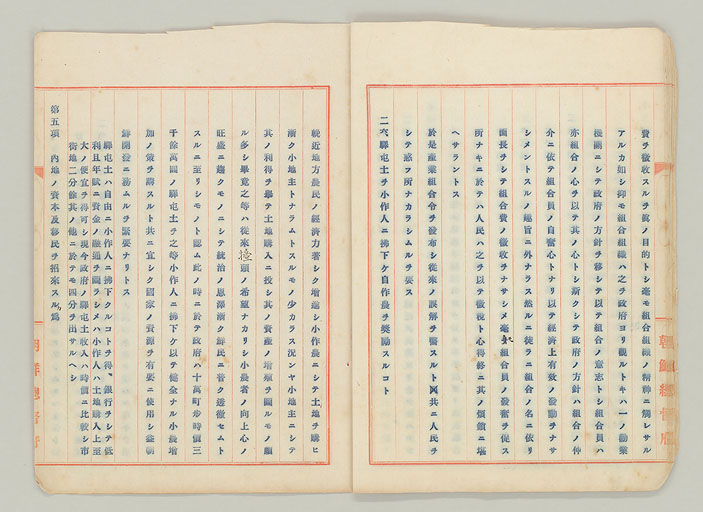 費ヲ徴收スルヲ眞ノ目的トシ毫モ組合組織ノ精神ニ觸レサル
アルカ如シ抑モ組合組織ハ之ヲ政府ヨリ觀ルトキハ一ノ勸業
機關ニシテ政府ノ方針ヲ移シテ以テ組合ノ意志トシ組合員ハ
亦組合ノ心ヲ以テ其ノ心トシ斯クシテ政府ノ方針ハ組合ノ仲
介ニ依テ組合員ノ自奮心トナリ以テ經濟上有效ノ發動ヲナサ
シメントスルノ趣旨ニ外ナラス然ルニ徒ラニ組合ノ名ニ依リ
面長ヲシテ組合費ノ徴收ヲナサシメ毫モ組合員ノ發奮ヲ促ス
所ナキニ於テハ人民ハ之ヲ以テ徴税ト心得終ニ其ノ煩鎖ニ堪
ヘサラントス
於是産業組合令ヲ發布シ從來ノ誤解ヲ醫スルト同共ニ人民ヲ
シテ惑フ所ナカラシムルヲ要ス
二六驛屯土ヲ小作人ニ拂下ケ自作農ヲ奬勵スルコト
朝鮮總督府
輓近地方農民ノ經濟力著シク增進シ小作農ニシテ土地ヲ購ヒ
漸ク小地主トナラムトスルモノ少カラス況ンヤ小地主ニシテ
其ノ利得ヲ擧テ土地購入ニ投シ其ノ資産ノ增殖ヲ圖ルモノ頗
ル多シ畢竟之等ハ從來擡頭ノ希望ナカリシ小農者ノ向上心ノ
旺盛ニ趨クモノニシテ統治ノ恩澤漸ク鮮民ニ普ク透徹セムト
スルニ至リシモノト認ム此ノ時ニ於テ政府ハ十萬町步時價三
千餘萬圓ノ驛屯土ヲ之等小作人ニ拂下ケ以テ健全ナル小農增
加ノ策ヲ講スルト共ニ宜シク國家ノ資源ヲ有要ニ使用シ益朝
鮮開發ニ務ムルヲ緊要ナリトス
驛屯土ハ自由ニ小作人ニ拂下クルコトヲ得、銀行ヲシテ低
利且年賦ニ資金ノ融通ヲ圖ラシメハ小作人ハ土地購入上至
大ノ便宜ヲ得可シ現今政府ノ驛屯土收入ハ時價ニ比較シ市
街地二分餘其ノ他ニ於テモ四分ヲ出サルヘシ
第五項　內地ノ資本及移民ヲ招來スル爲
朝鮮總督府